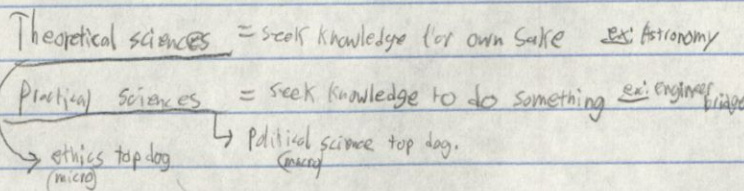 Theoretical sciences = seek knowledge for own sake ex: Astronomy
Practical sciences = seek knowledge to do something ex: engineer bridge
→ ethics top dog → Political science top dog.
(micro) (macro)